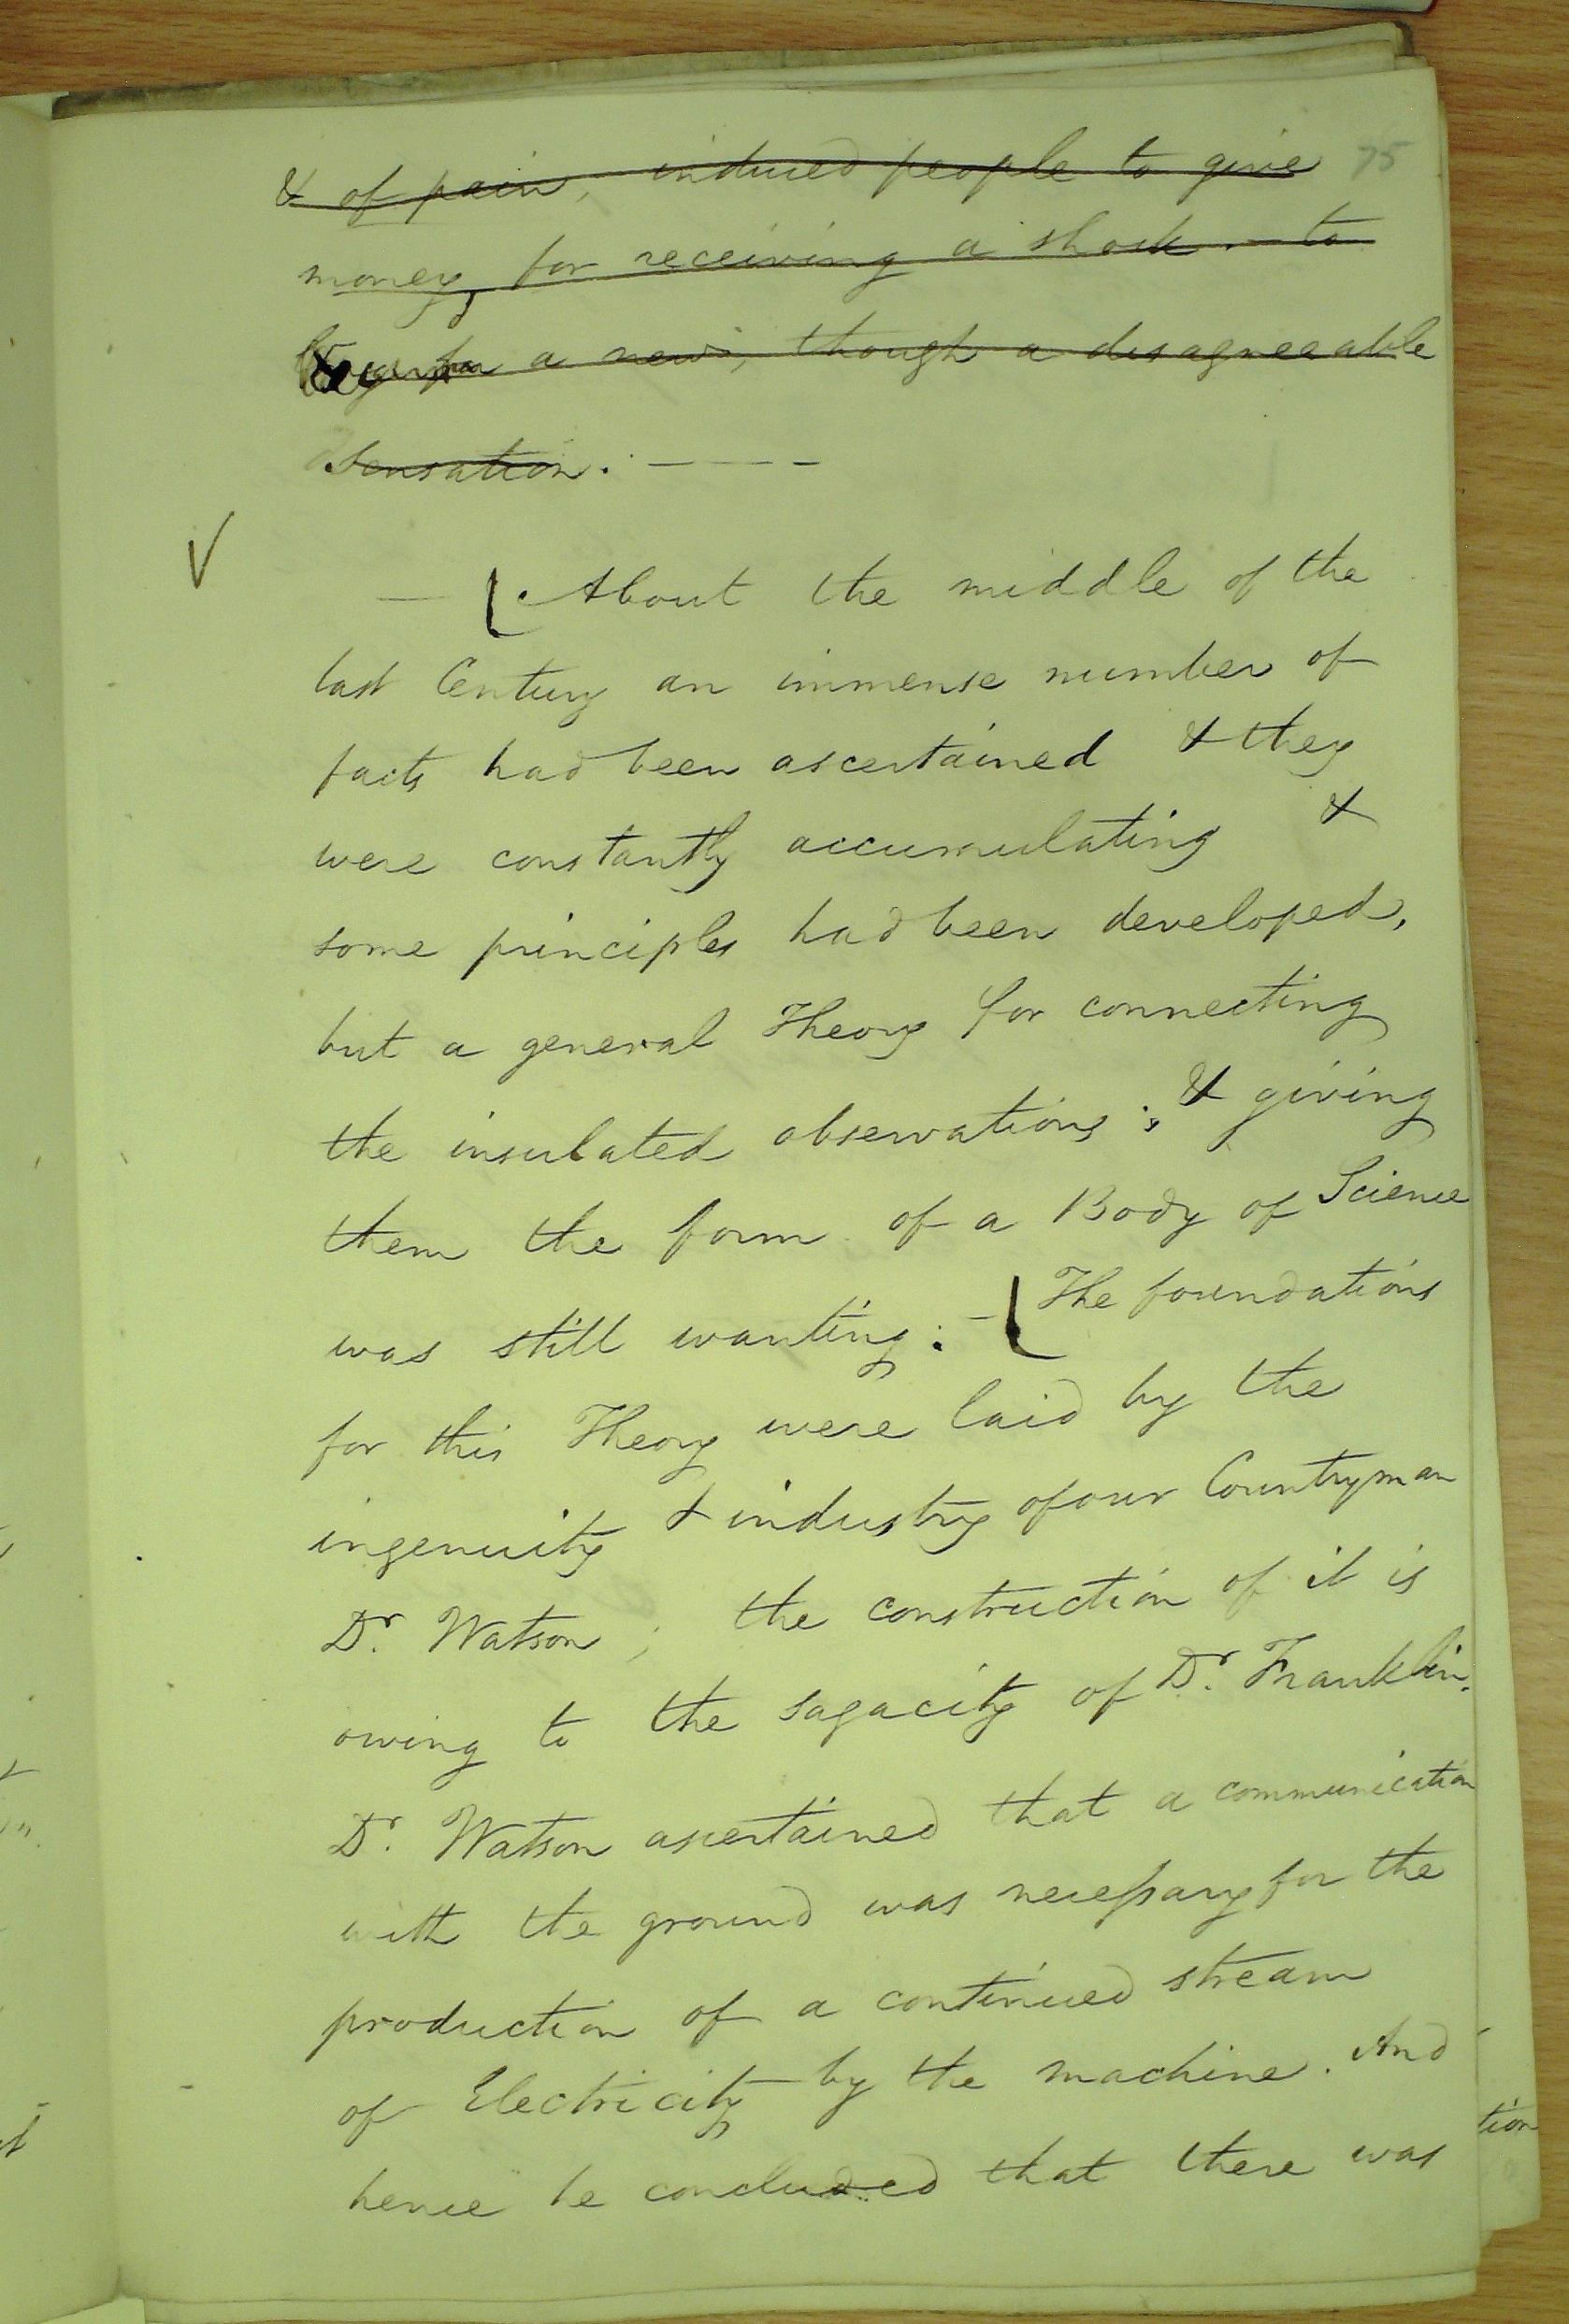 & of pain, induced people to give 75
money for receiving a shock. — to
a new, though a disagreeable
sensation. — — —
— [About the middle of the
last Century an immense number of
facts had been ascertained & they
were constantly accumulating &
some principles had been developed,
but a general Theory for connecting
the insulated observations; & giving
them the form of a Body of Science
was still wanting: — [The foundations
for this Theory were laid by the
ingenuity & industry of our Countryman
Dr. Watson; the construction of it is
owing to the sagacity of Dr. Franklin.
Dr. Watson ascertained that a communication
with the ground was necessary for the
production of a continued stream
of Electricity by the machine. And
hence he concluded that there was
tion